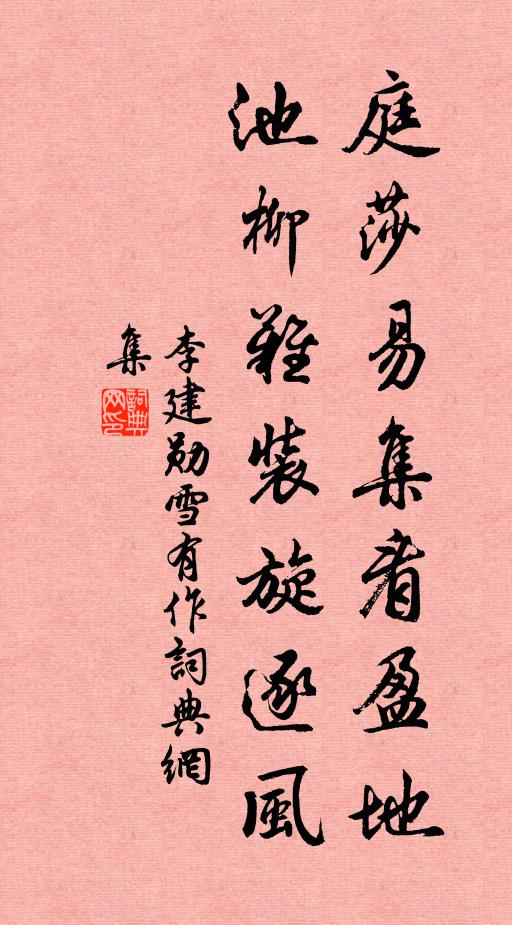 庭莎易集看盈地
池柳難裝旋逐風
李建勛雪有作詞典網
集
詞典
网印